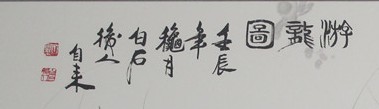 游龍圖
壬辰
年
穐月
白石
後人
自来